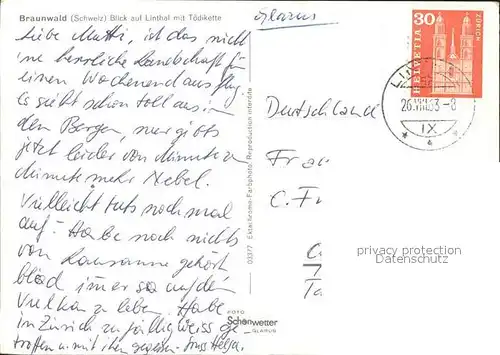 Braunwald (Schweiz) Blick auf Linthal mit Tödikette
Glarus
Liebe Mutti, ist das nicht
'ne herrliche Landschaft für
einen Wochenendausflug
Es sieht schon toll aus in
den Bergen, nur gibts
jetzt leider von Minute zu
Minute mehr Nebel.
Vielleicht tuts noch mal
auf! Habe noch nichts
von Lausanne gehört
blöd immer so auf dem
Vulkan zu leben. Habe
in Zürich zufällig
getroffen u. mit ihm gegessen. Gruss
03377 Ektachrome-Farbphoto Reproduction interdite
FOTO
Schönwetter
GLARUS
Deutschland
Frau
C. Fr
30
HELVETIA
ZÜRICH
LI
26.VIII.63-8
IX
privacy protection
Datenschutz